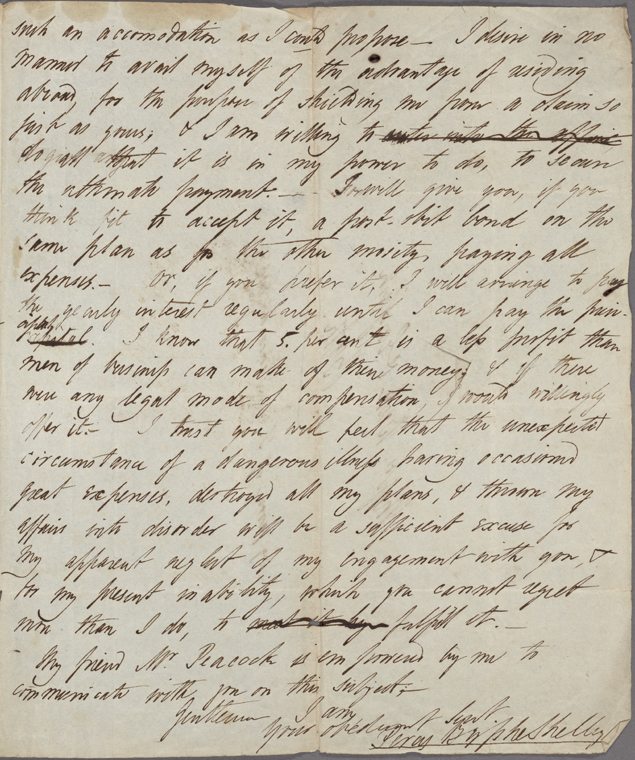 such an accomodation as I could propose— I desire in no
manner to avail myself of the advantage of residing
abroad, for the purpose of shielding me from a claim so
just as yours; & I am willing to
do all that it is in my power to do, to secure
the ultimate payment.— I will give you, if you
think fit to accept it, a post-obit bond on the
same plan as for the other moiety, paying all
expenses.— Or, if you prefer it, I will arrange to pay
the yearly interest regularly until I can pay the prin-
cipal. I know that 5. per cent is a less profit than
men of business can make of their money; & if there
were any legal mode of compensation I would willingly
offer it.— I trust you will feel that the unexpected
circumstance of a dangerous illness having occasioned
great expenses, destroyed all my plans, & thrown my
affairs into disorder will be a sufficient excuse for
my apparent neglect of my engagement with you, &
for my present inability, which you cannot regret
more than I do, to fulfill it.—
My friend Mr Peacock is empowered by me to
communicate with you on this subject;
Gentlemen I am
Your obedient Servt
Percy Bysshe Shelley